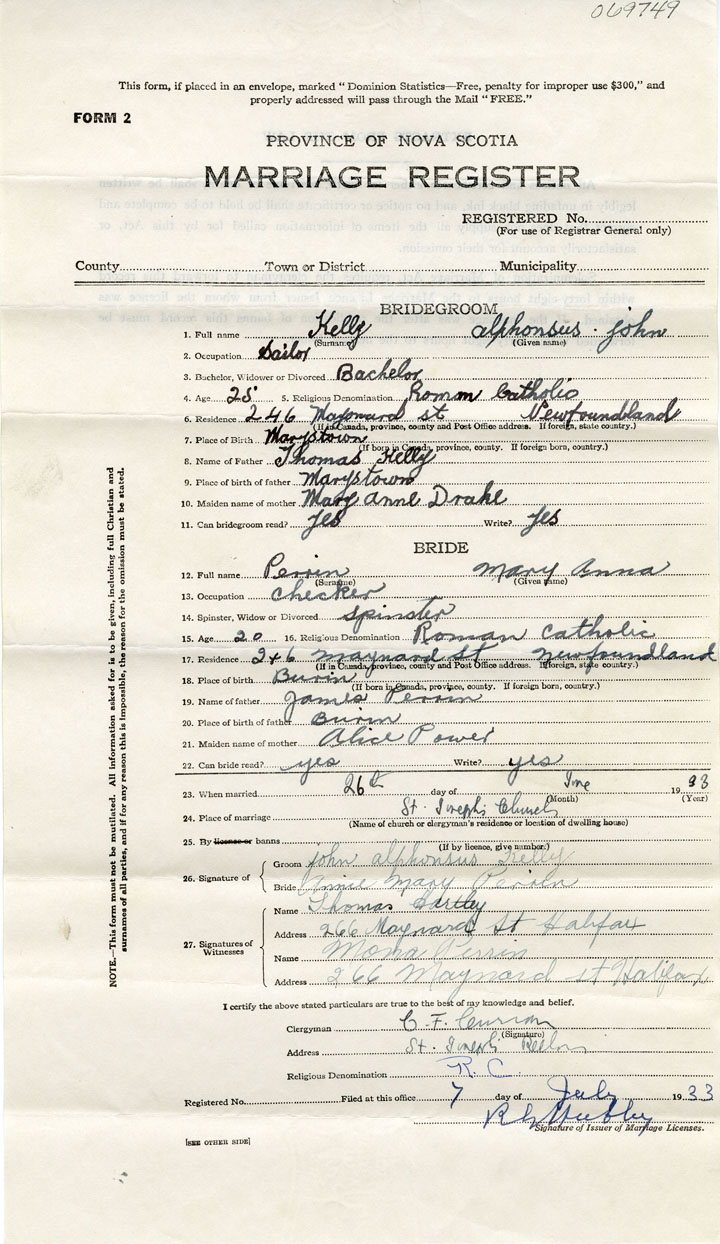 069749
This form, if placed in an envelope, marked "Dominion Statistics—Free, penalty for improper use $300," and
properly addressed will pass through the Mail "FREE."
FORM 2
PROVINCE OF NOVA SCOTIA
MARRIAGE REGISTER
REGISTERED No.
(For use of Registrar General only)
County Town or District Municipality
BRIDEGROOM
1. Full name Kelly alphonsus. john
(Surname) (Given name)
2. Occupation Sailor
3. Bachelor, Widower or Divorced Bachelor
4. Age 25 5. Religious Denomination Roman Catholic
6. Residence 246 Maynard st Newfoundland
(If in Canada, province, county and Post Office address. If foreign, state country.)
7. Place of Birth Marystown
(If born in Canada, province, county. If foreign born, country.)
8. Name of Father Thomas Kelly
9. Place of birth of father Marystown
10. Maiden name of mother Mary Anne Drake
11. Can bridegroom read? yes Write? yes
BRIDE
12. Full name Perrin Mary Anna
(Surname) (Given name)
13. Occupation checker
14. Spinster, Widow or Divorced spinster
15. Age 20 16. Religious Denomination Roman Catholic
17. Residence 246 maynard St Newfoundland
(If in Canada, province, county and Post Office address. If foreign, state country.)
18. Place of birth Burin
(If born in Canada, province, county. If foreign born, country.)
19. Name of father James Perrin
20. Place of birth of father Burin
21. Maiden name of mother Alice Power
22. Can bride read? yes Write? yes
23. When married 26th day of June 1933
(Month) (Year)
24. Place of marriage St. Joseph's Church
(Name of church or clergyman's residence or location of dwelling house)
25. By licence or banns
(If by licence, give number.)
26. Signature of
Groom john alphonsus Kelly
Bride Annie Mary Perrin
27. Signatures of Witnesses
Name Thomas
Address 266 Maynard St Halifax
Name Mona Perrin
Address 266 Maynard st Halifax
I certify the above stated particulars are true to the best of my knowledge and belief.
Clergyman C. F. Curran
(Signature)
Address St. Joseph's
Religious Denomination R. C.
Registered No. Filed at this office 7 day of July 1933
Signature of Issuer of Marriage Licenses.
[SEE OTHER SIDE]
NOTE.—This form must not be mutilated. All information asked for is to be given, including full Christian and
surnames of all parties, and if for any reason this is impossible, the reason for the omission must be stated.